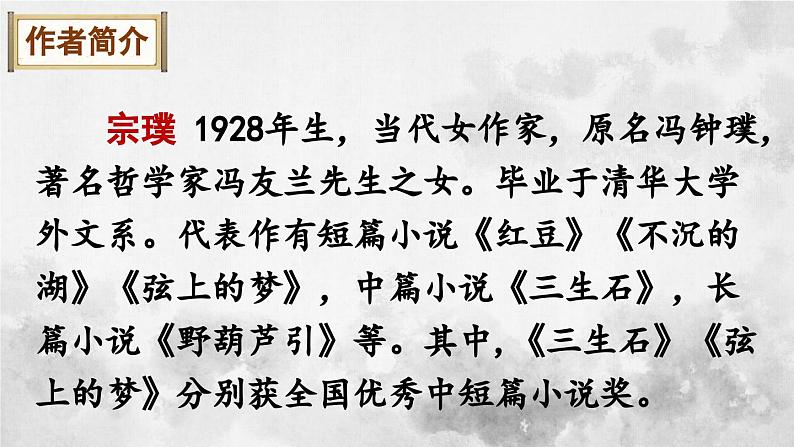 作者简介
宗璞 1928年生，当代女作家，原名冯钟璞，
著名哲学家冯友兰先生之女。毕业于清华大学
外文系。代表作有短篇小说《红豆》《不沉的
湖》《弦上的梦》，中篇小说《三生石》，长
篇小说《野葫芦引》等。其中，《三生石》《弦
上的梦》分别获全国优秀中短篇小说奖。